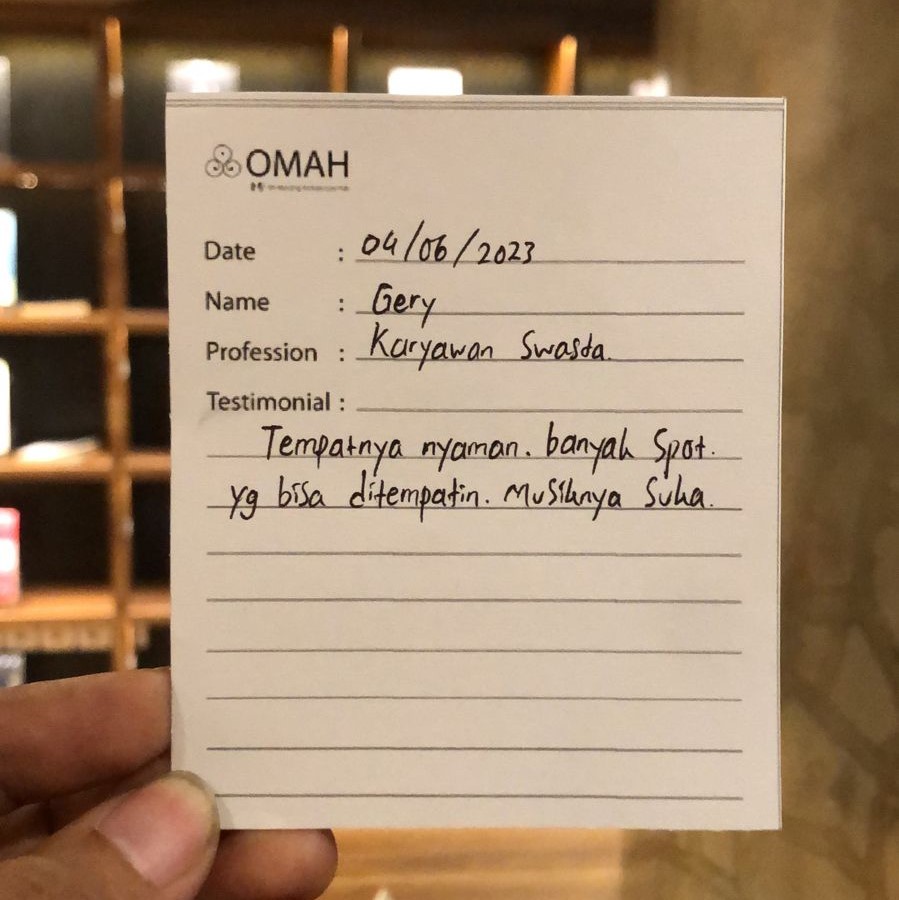 OMAH
Date : 04/06/2023
Name : Gery
Profession : Karyawan Swasta.
Testimonial :
Tempatnya nyaman. banyak Spot.
yg bisa ditempatin. Musiknya Suka.